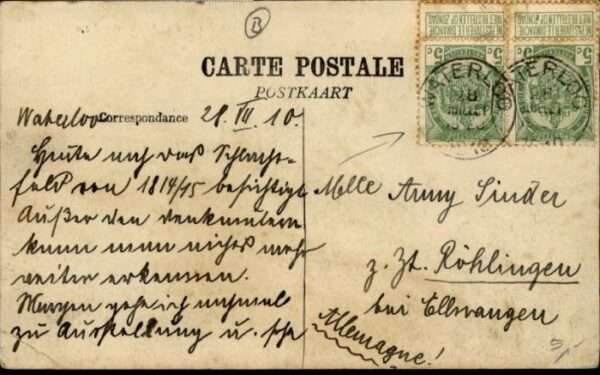 B
CARTE POSTALE
POSTKAART
Correspondance
Waterloo 28. VII. 10.
Heute noch das Schlacht-
feld von 1814/15 besichtigt
Außer den Denkmälern
kann man nichts mehr
weiter erkennen.
Morgen gehe ich nochmal
zu Ausstellung u.
Melle Army Sinder
z. Zt. Röhlingen
bei Ellwangen
Allemagne!
5c 5c
5c 5c
WATERLOO
28
JUILLET
WATERLOO
JUILLET